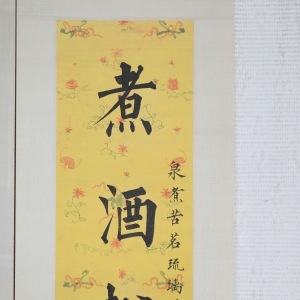 煮酒
泉煮苦茗琉璃